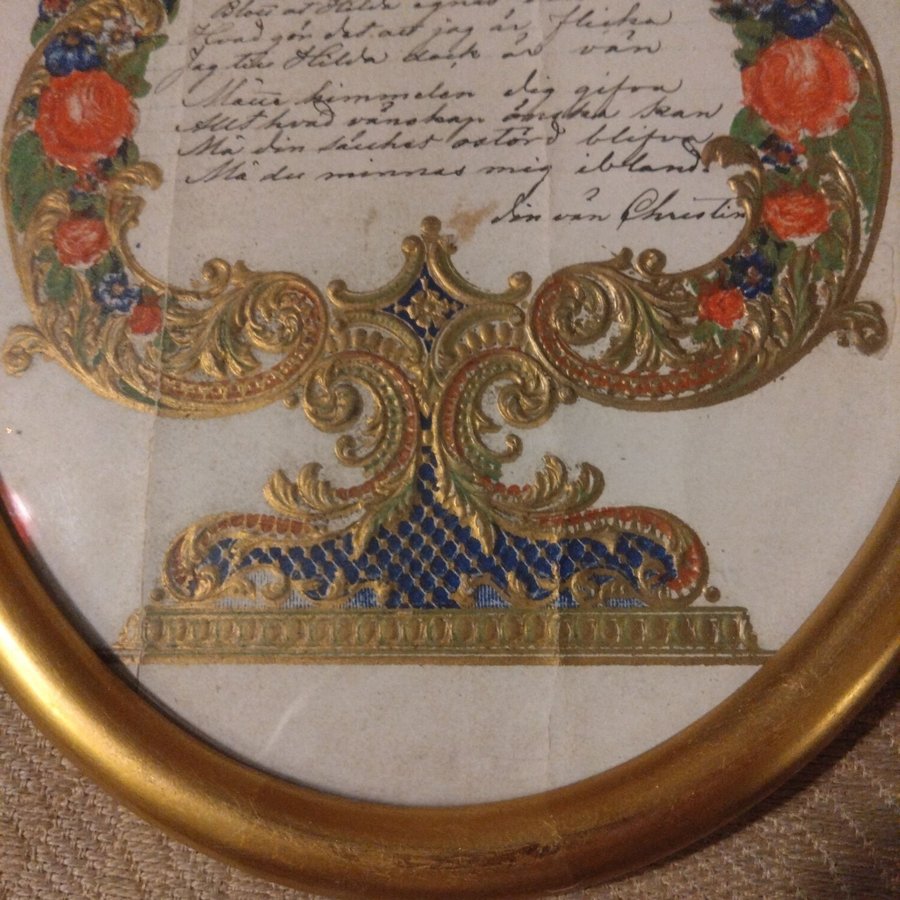 Blott at Hilda egnas
Hvad gör det att jag är flicka
Jag till Hilda dock är vän
Måtte himmelen dig gifva
Allt hvad vänskap önska kan
Må din säckhet ostörd blifva
Må du minnas mig ibland.
din vän Christin